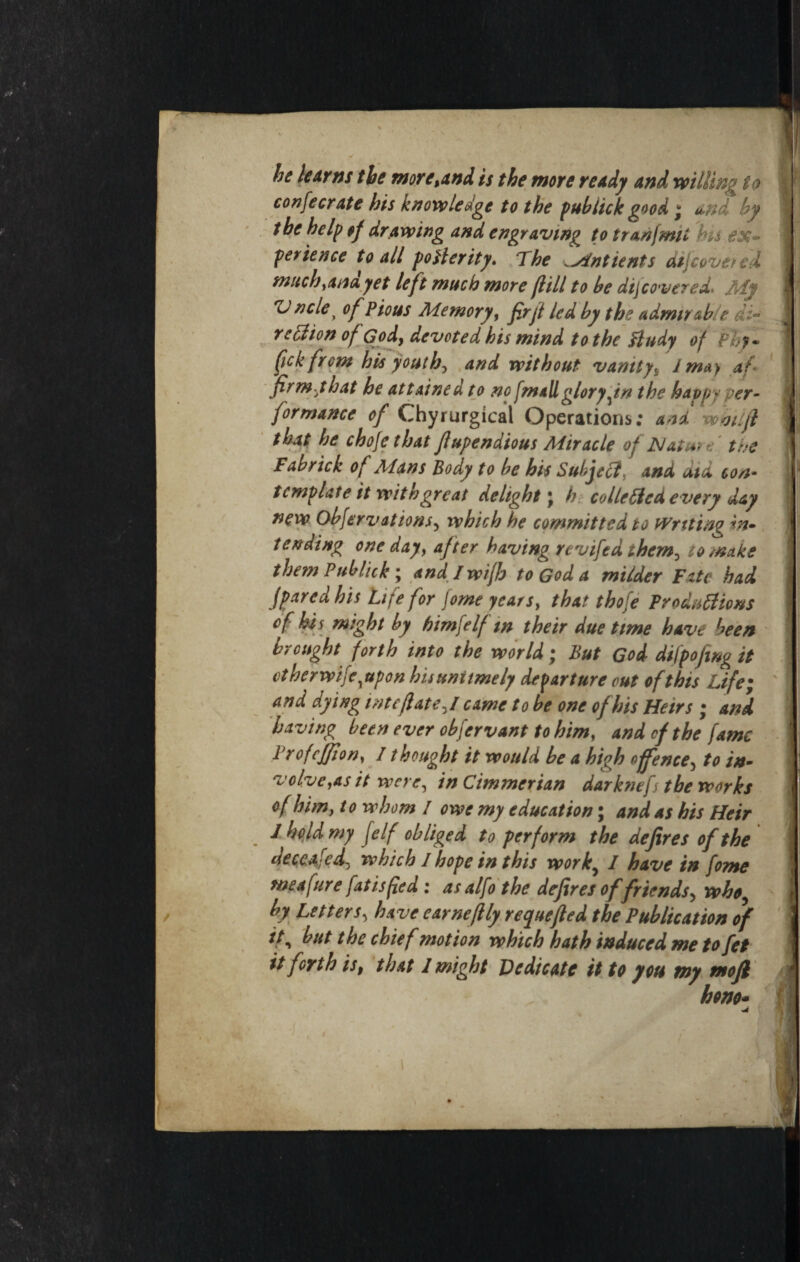 he learns the more, and is the more ready and willing to
consecrate his knowledge to the publick good; and by
the help of drawing and engraving to transmit his ex-
perience to all posterity. The Antients discovered
much, and yet left much more still to be discovered. My
Vncle, of Pious Memory, first led by the admirable di-
rection of God, devoted his mind to the study of Phy-
sick from his youth, and without vanity, I may af-
firm, that he attained to no small glory, in the happy per-
formance of Chyrurgical Operations: and whilst
that he chose that stupendious Miracle of Nature the
Fabrick of Mans Body to be his Subject, and did con-
template it with great delight; he collected every day
new Observations, which he committed to Writing in-
tending one day, after having revised them, to make
them Publick; and I wish to God a milder Fate had
spared his Life for some years, that those Productions
of his might by himself in their due time have been
brought forth into the world; But God disposing it
otherwise, upon his untimely departure out of this Life;
and dying intestate, I came to be one of his Heirs; and
having been ever observant to him, and of the same
Profession, I thought it would be a high offence, to in-
volve, as it were, in Cimmerian darkness the works
of him, to whom I owe my education; and as his Heir
I hold my self obliged to perform the desires of the
deceased, which I hope in this work, I have in some
measure satisfied: as also the desires of friends, who,
by Letters, have earnestly requested the Publication of
it, but the chief motion which hath induced me to set
it forth is, that I might Dedicate it to you my most
hono-